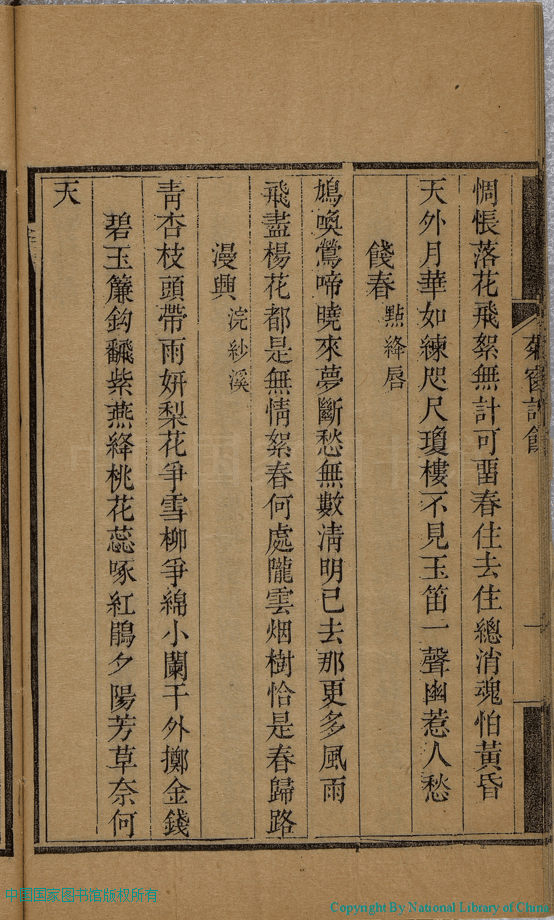 惆悵落花飛絮無計可畱春住去住總消魂怕黃昏
天外月華如練咫尺瓊樓不見玉笛一聲幽惹人愁
餞春 點絳唇
鳩喚鶯啼曉來夢斷愁無數淸明已去那更多風雨
飛盡楊花都是無情絮春何處隴雲烟樹恰是春歸路
漫興 浣紗溪
靑杏枝頭帶雨妍梨花爭雪柳爭綿小闌干外擲金錢
碧玉簾鈎飜紫燕絳桃花蕊啄紅鵑夕陽芳草奈何
天
中国国家图书馆版权所有
Copyright By National Library of China